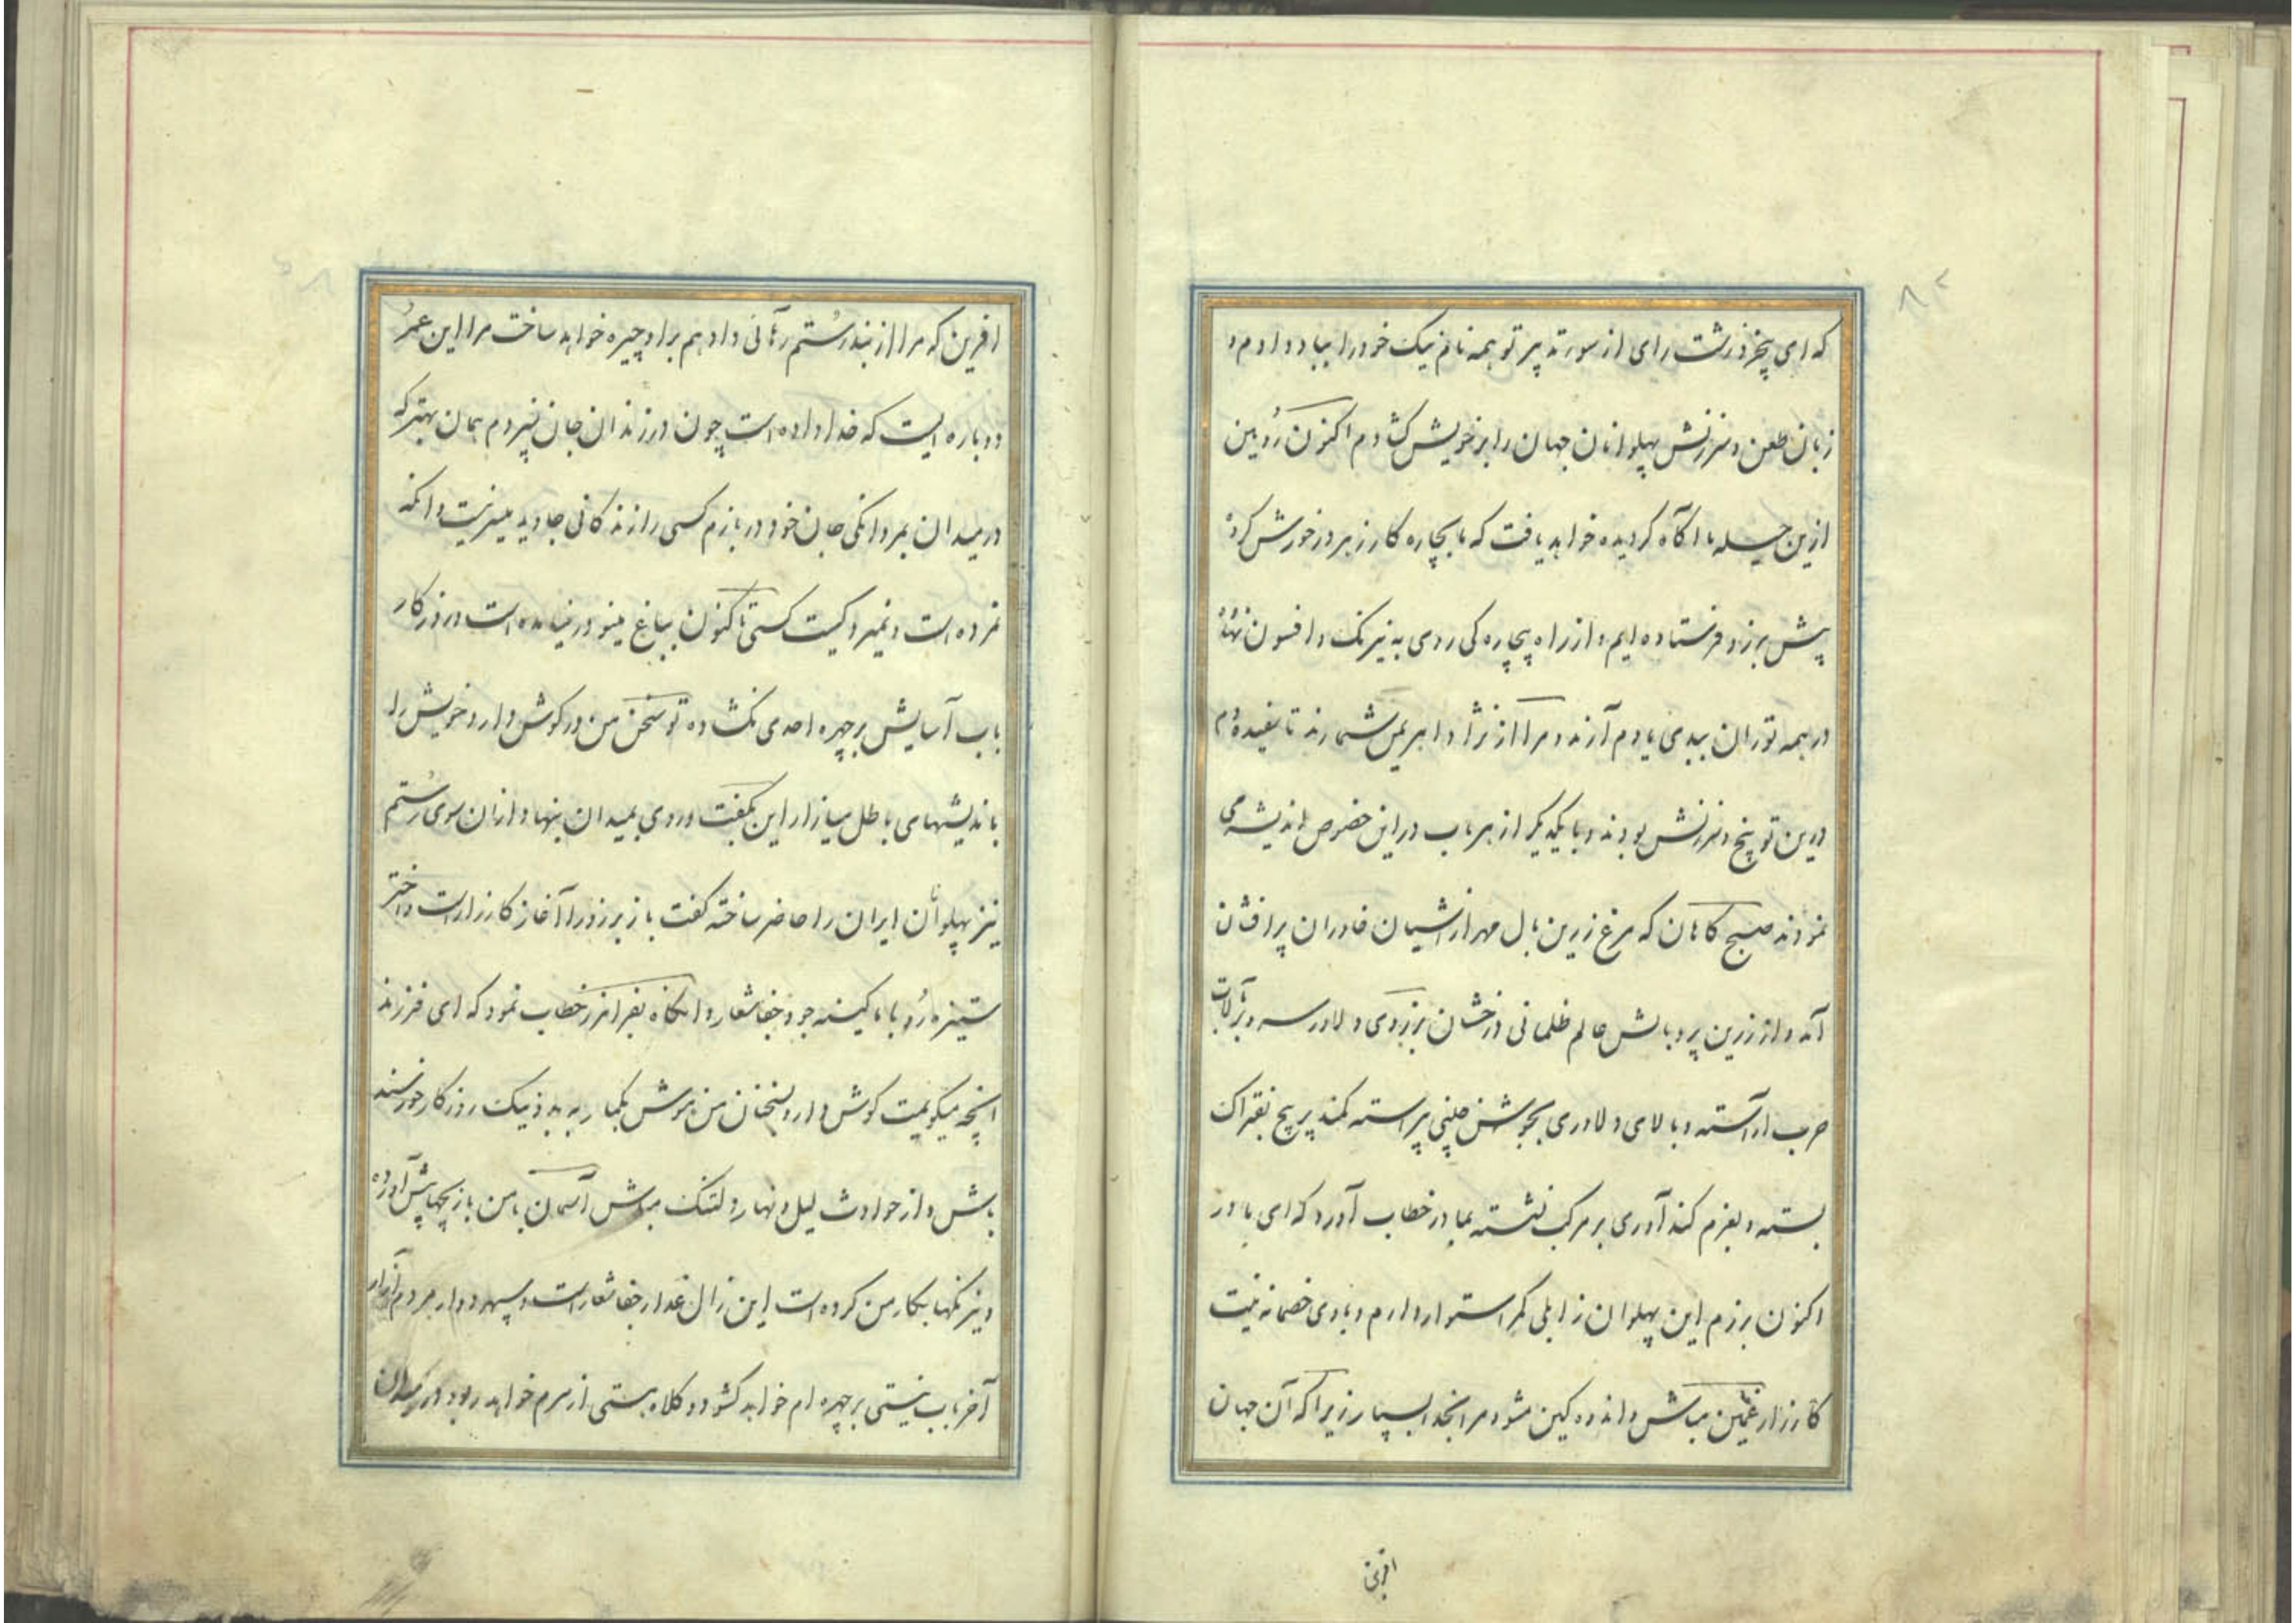 ۸۲
که ای بیخرد زشت رای از سور تدبیر تو همه نام نیک خود را بباد دادم و
زبان طعن و سرزنش پهلوانان جهان را بر خویش کشادم اکنون روبین
ازین حیله ما آگاه کردیده خواهد یافت که ما بیچاره کار زبر در خورش کرده
پیش برزو فرستاده ایم و از راه بیچاره کی روی به نیرنک و افسون نهاده
در همه توران ببدی یادم آرند و مرا از نژاد اهریمن شمارند تا سفیده دم
درین توبیخ و سرزنش بودند و با یکدیگر از هر باب در این خصوص اندیشه می
نمودند صبح کاهان که مرغ زرین بال مهر از آشیان خاوران پر افشان
آمد و از زرین پر و بالش عالم ظلمانی درخشان برزوی دلاور سر و بر بآلات
حرب آراسته و بالای دلاوری بجوشن چینی پیراسته کمند پر پیچ بفتراک
بسته و بعزم کند آوری بر مرکب نشسته بمادر خطاب آورد که ای مادر
اکنون برزم این پهلوان زابلی کمر استوار دارم و با وی خصمانه نیت
کارزار غمین مباش و اندوه کین مشو مرا بخدا بسپار زیرا که آن جهان
افرین
افرین که مرا از بند رستم رهائی داد هم بر او چیره خواهد ساخت مرا این عمر
دوباره ایست که خدا داده است چون در زندان جان نسپردم همان بهتر که
در میدان بمردانکی جان خود در بازم کسی را زندکانی جاوید میسر نیست و انکه
نمرده است و نمیرد کیست کسی تا کنون بباغ مینو در نیامده است و روزکار
باب آسایش بر چهره احدی نکشاده تو سخن من در کوش دار و خویش را
باندیشهای باطل میازار این بکفت و روی بمیدان بنهاد و از ان سوی رستم
نیز پهلوانان ایران را حاضر ساخته کفت باز برزو را آغاز کارزار است و اختر
ستیزه رو با ما کینه جو و جفا شعار و انکاه بفرامرز خطاب نمود که ای فرزند
انچه میکویمت کوش دار و بسخنان من هوش بکمار به بد و نیک روزکار خورسند
باش و از حوادث لیل و نهار دلتنک مباش آسمان با من بازیچها پیش آورده
و نیرنکها بکار من کرده است این زال غدار جفا شعار است و سپهر دوار مردم آزار
آخر باب نیستی بر چهره ام خواهد کشود و کلاه هستی از سرم خواهد ربود در میدان